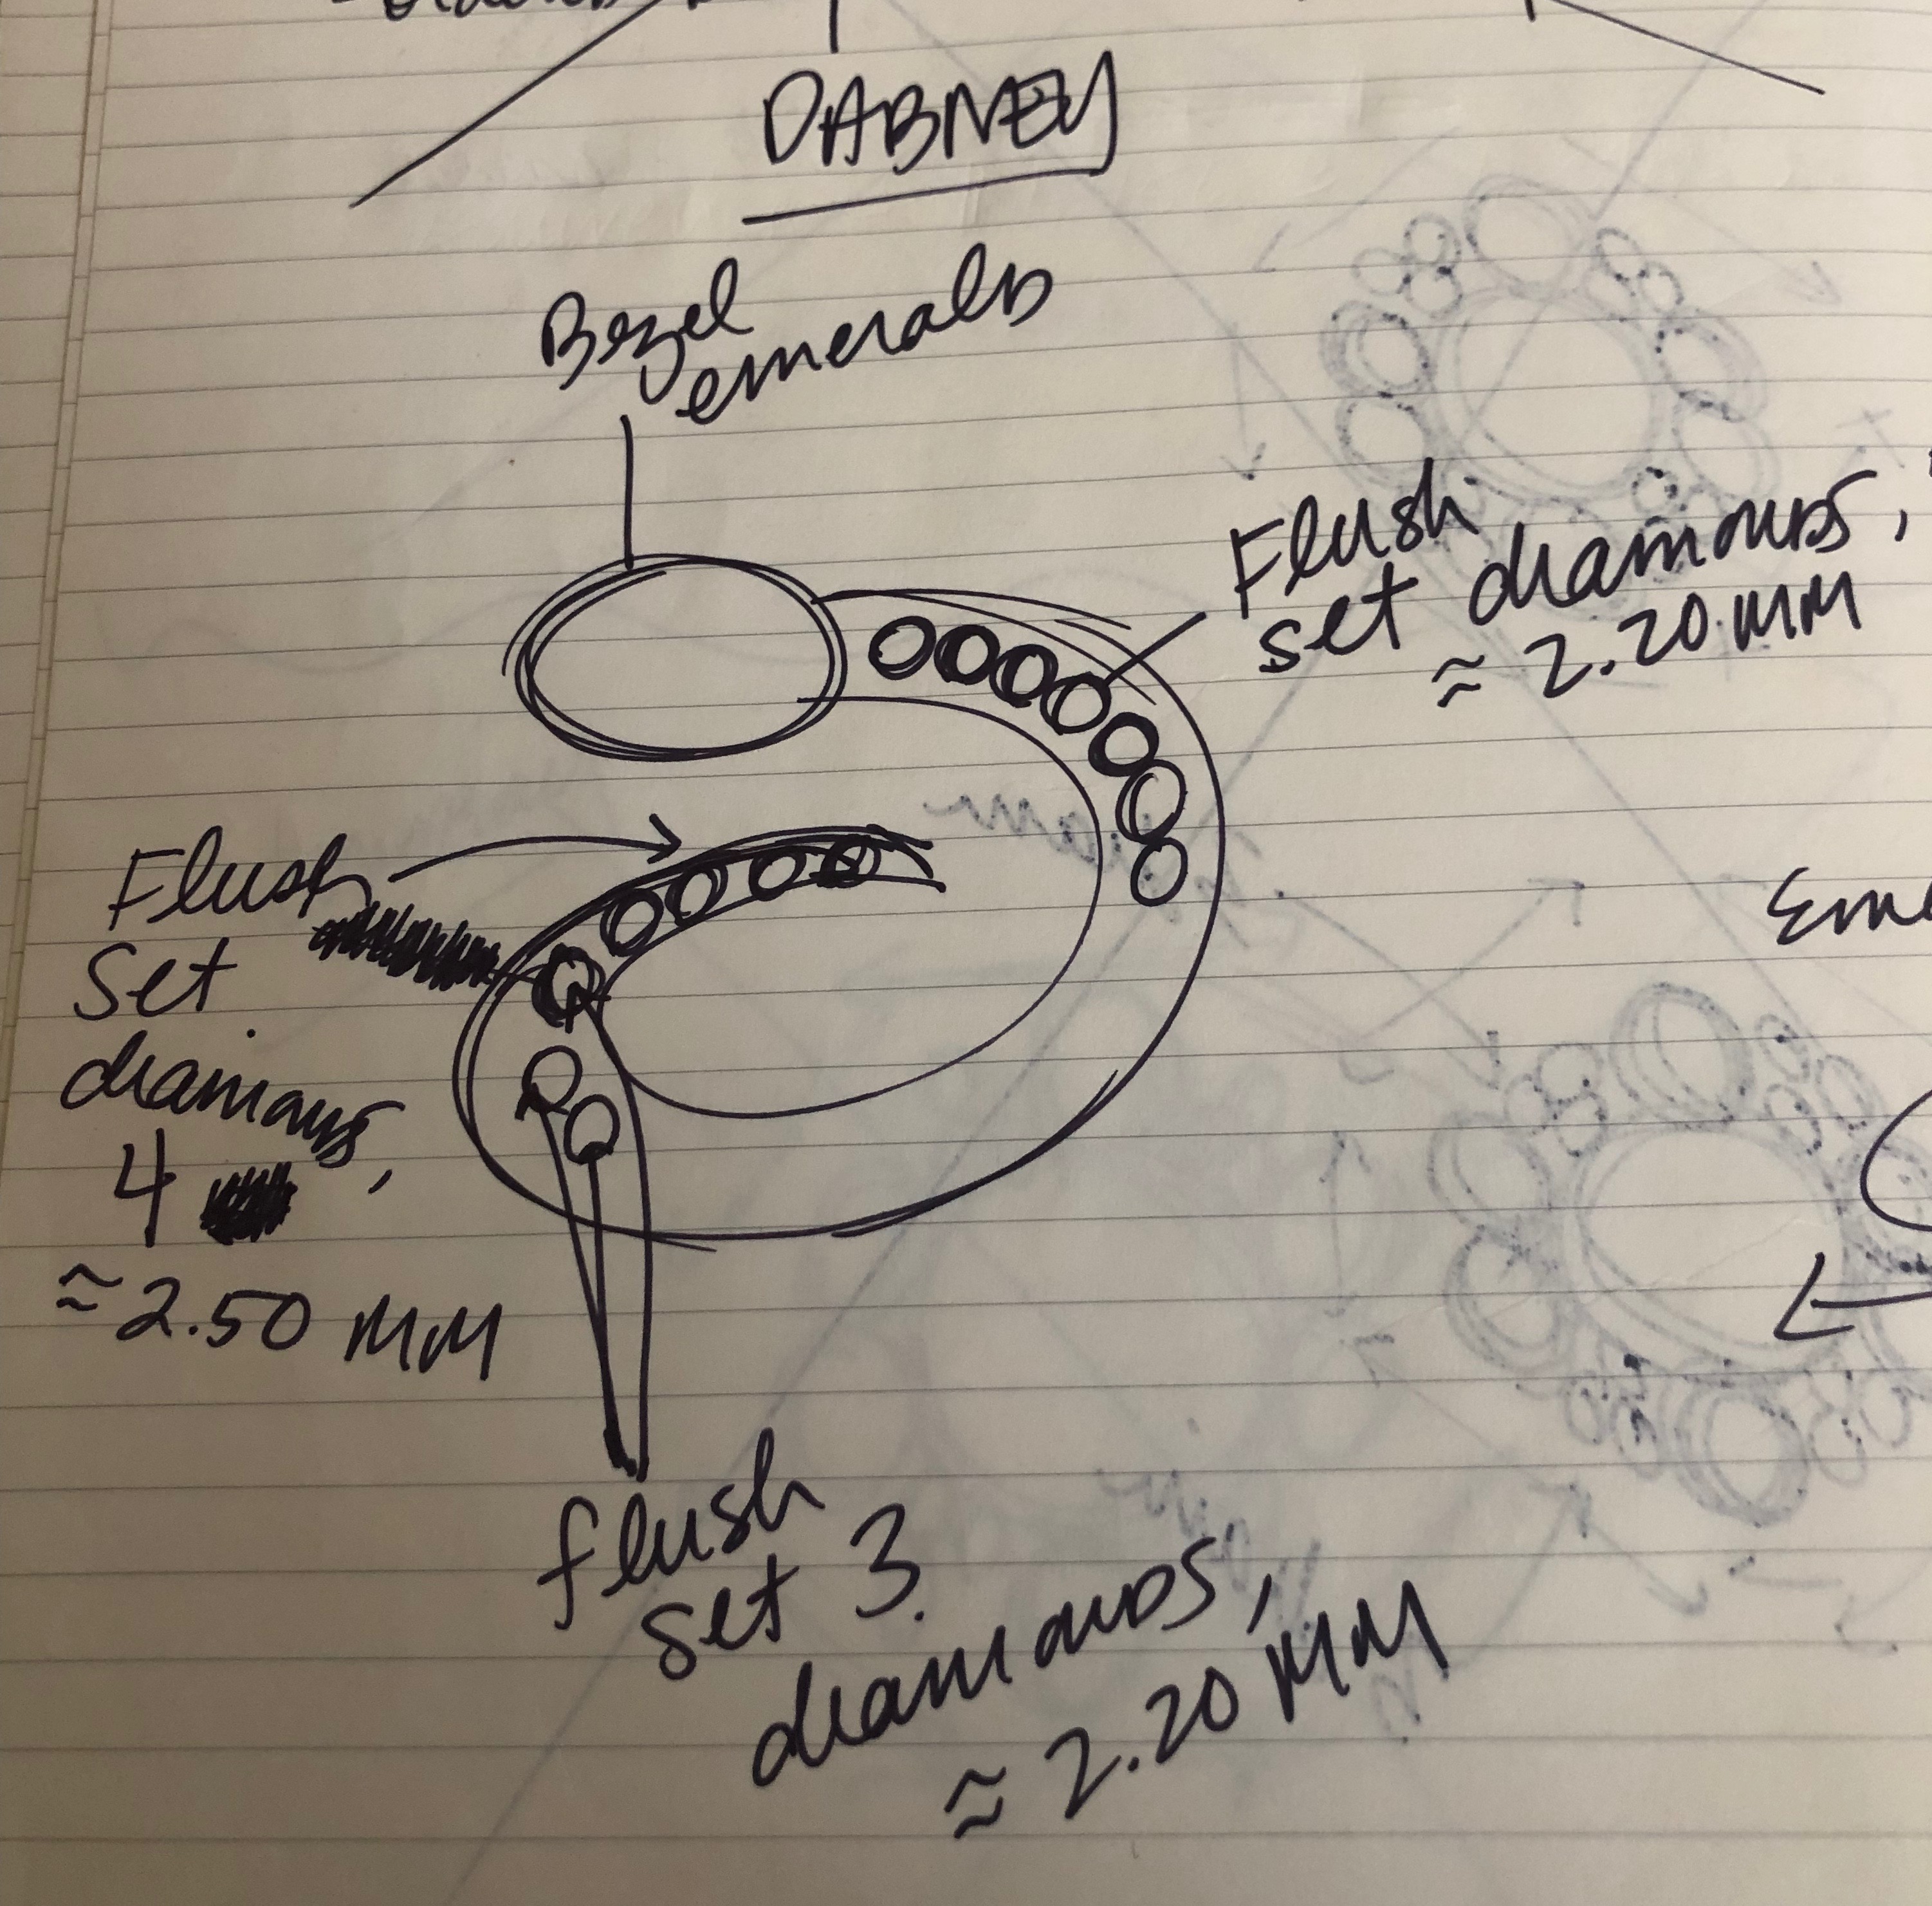 DABNEY
Bezel
emerald
Flush
set diamonds,
≈ 2.20 MM
Flush
Set
diamonds,
4
≈ 2.50 MM
flush
set 3
diamonds,
≈ 2.20 MM